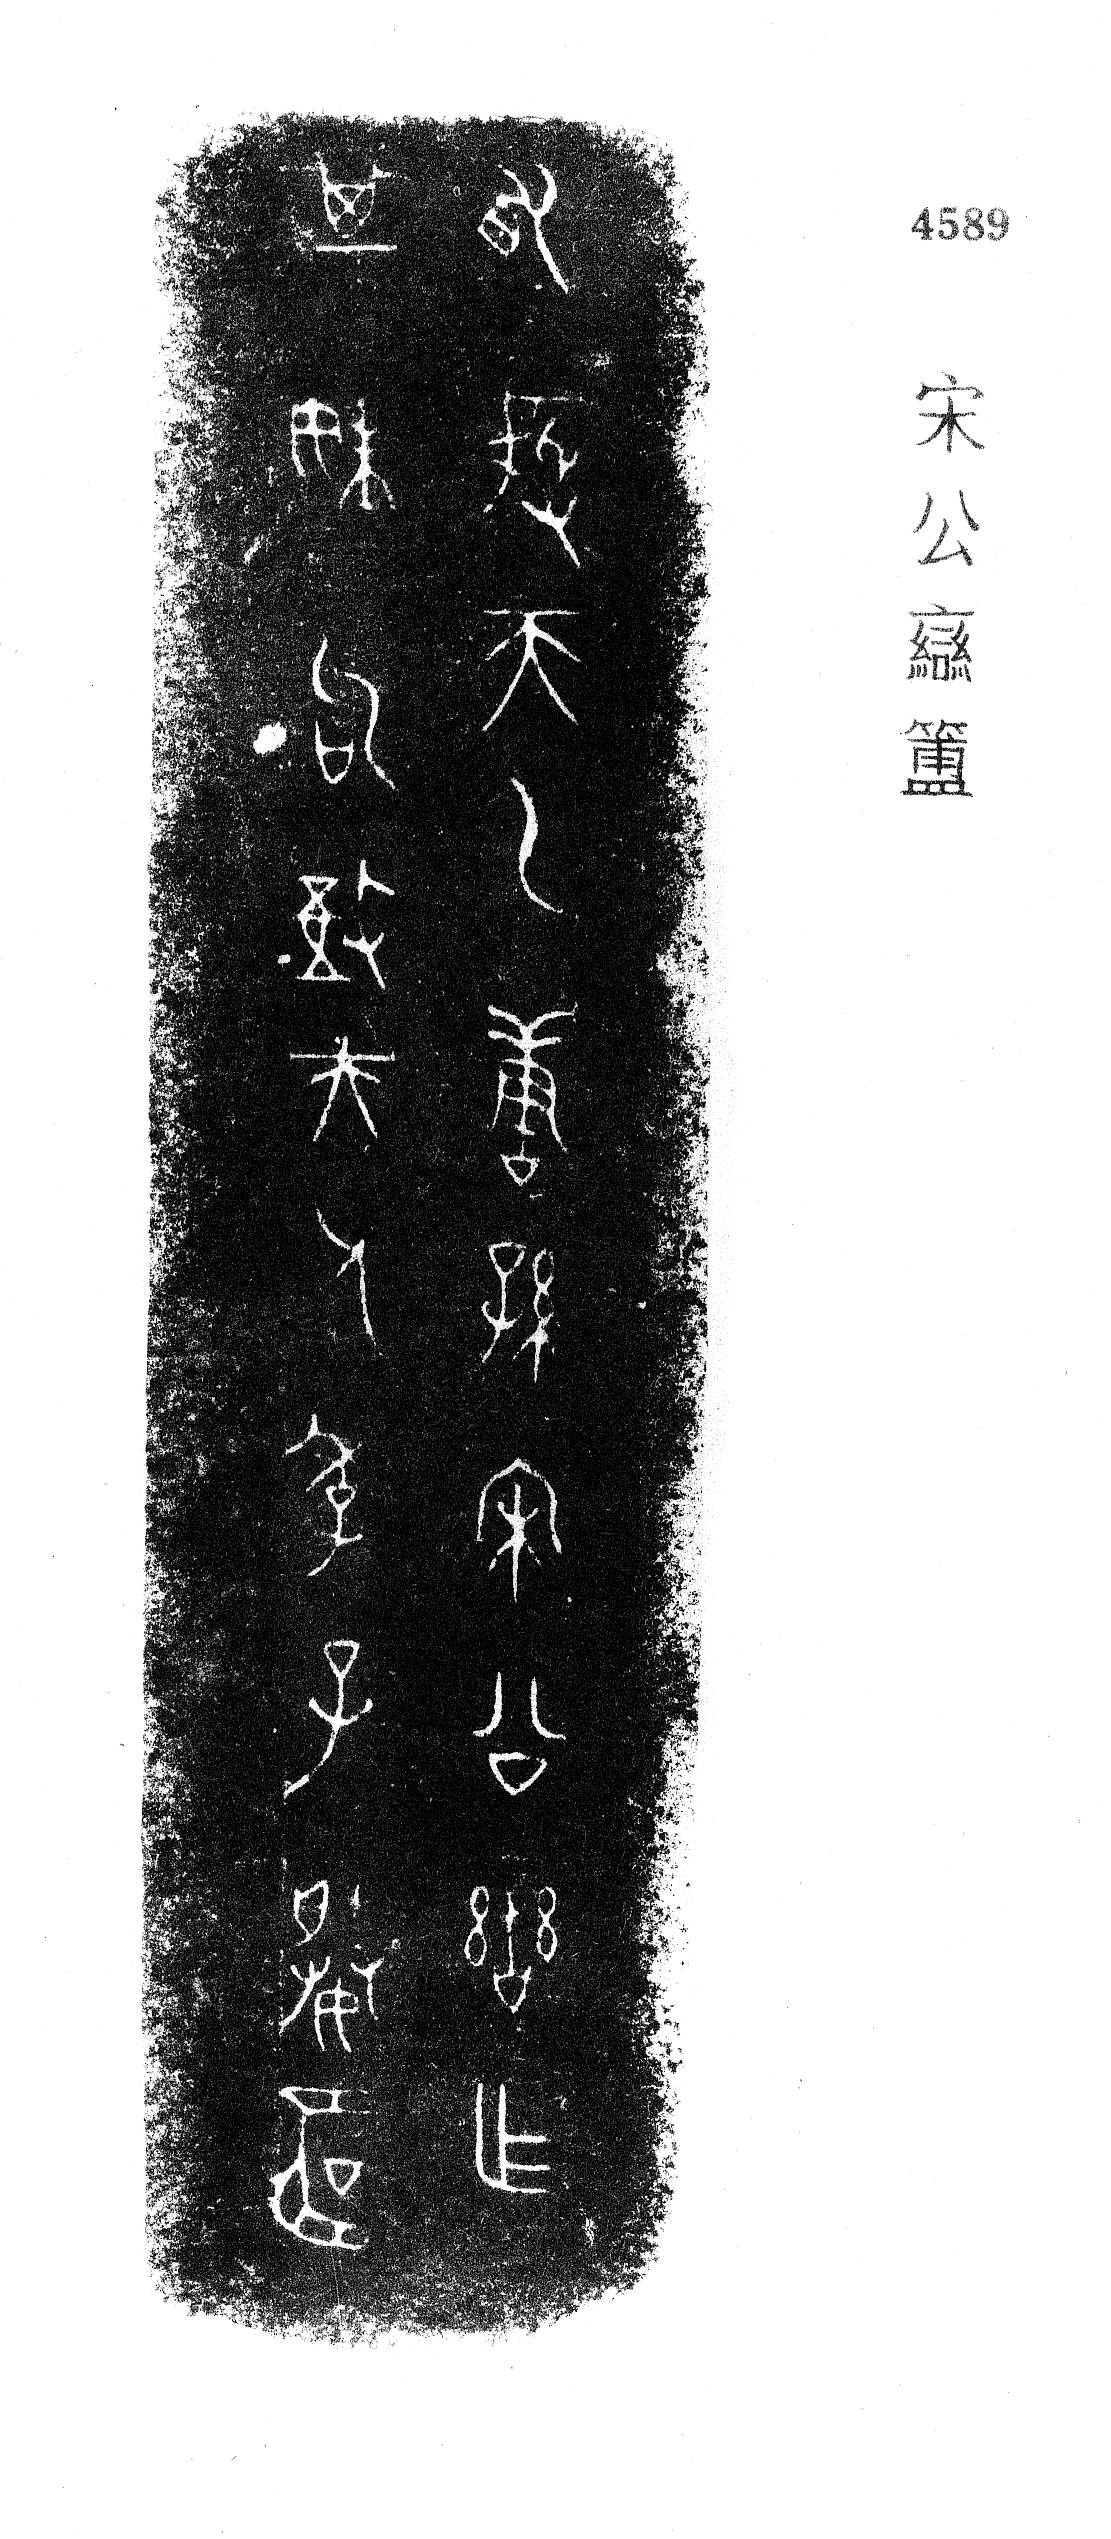 4589
宋公䜌簠
有殷天乙唐孫宋公䜌乍
其妹句敔夫人季子媵𠤳